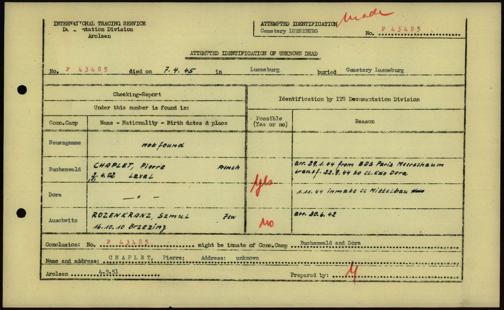 INTERNATIONAL TRACING SERVICE
Documentation Division
Arolsen
ATTEMPTED IDENTIFICATION
Cemetery LUENEBURG
made
No. F 43485
ATTEMPTED IDENTIFICATION OF UNKNOWN DEAD
No. F 43485 died on 7.4.45 in Lueneburg buried Cemetery Lueneburg
Checking-Report
Under this number is found:
Identification by ITS Documentation Division
Conc.Camp
Name - Nationality - Birth date & place
Possible
(Yes or no)
Reason
Neuengamme
not found
Buchenwald
CHAPLET, Pierre French
Laval
yes
arr. 29.1.44 from BDS Paris Meerschaum
Dora
— " —
1.11.44 inmate CC Mittelbau
Auschwitz
ROZENKRANZ, Szmul Jew
16.10.10 Brzeziny
no
arr. 30.6.42
Conclusion: No. F 43485 might be inmate of Conc.Camp Buchenwald and Dora
Name and address: CHAPLET, Pierre; Address: unknown
Arolsen 4.9.51 Prepared by: